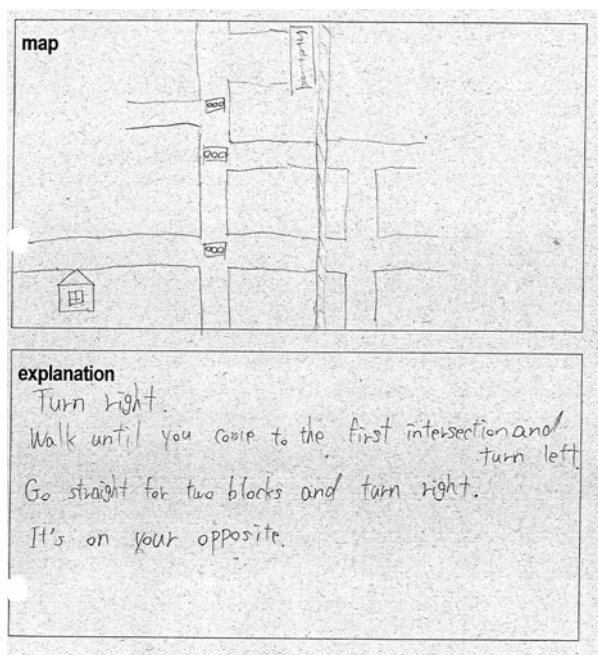 map
explanation
Turn right.
Walk until you come to the first intersection and
turn left
Go straight for two blocks and turn right.
It's on your opposite.